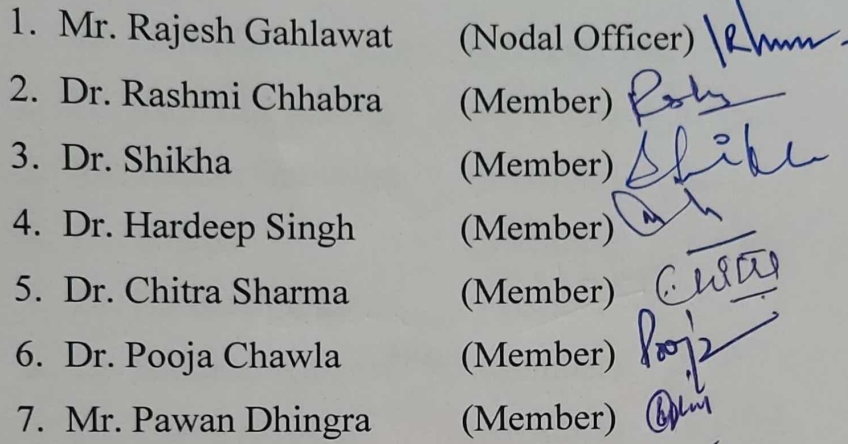 1. Mr. Rajesh Gahlawat (Nodal Officer)
2. Dr. Rashmi Chhabra (Member)
3. Dr. Shikha (Member) Shikha
4. Dr. Hardeep Singh (Member)
5. Dr. Chitra Sharma (Member)
6. Dr. Pooja Chawla (Member) Pooja
7. Mr. Pawan Dhingra (Member)